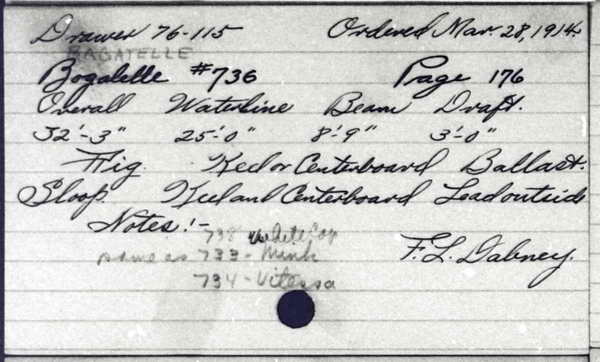 Drawer 76-115 Ordered Mar. 28, 1914.
BAGATELLE
Bogatelle #736 Page 176
Overall Waterline Beam Draft.
32'-3" 25'-0" 8'-9" 3'-0"
Fig. Keel or Centerboard Ballast.
Sloop. Keel and Centerboard Lead outside
Notes:-
738 White Cap
same as 733 - Mink F. L. Dabney.
734 - Vitessa